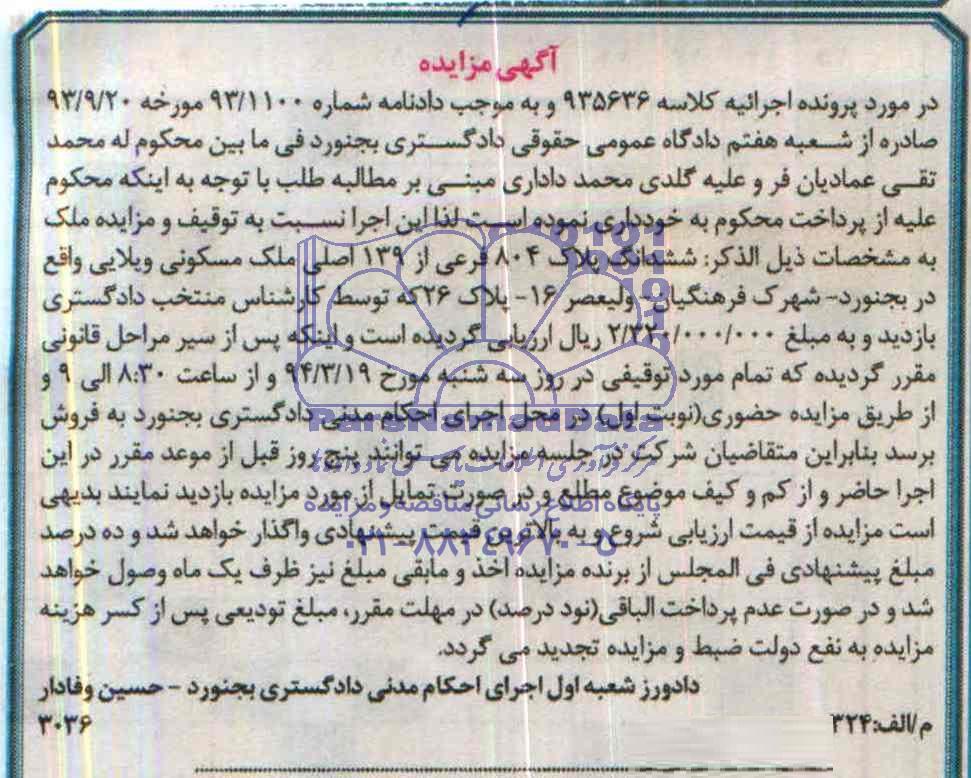 آگهی مزایده
در مورد پرونده اجرائیه کلاسه ۹۳۵۶۳۶ و به موجب دادنامه شماره ۹۳/۱۱۰۰ مورخه ۹۳/۹/۲۰
صادره از شعبه هفتم دادگاه عمومی حقوقی دادگستری بجنورد فی ما بین محکوم له محمد
تقی عمادیان فر و علیه گلدی محمد داداری مبنی بر مطالبه طلب با توجه به اینکه محکوم
علیه از پرداخت محکوم به خودداری نموده است لذا این اجرا نسبت به توقیف و مزایده ملک
به مشخصات ذیل الذکر: ششدانگ پلاک ۸۰۴ فرعی از ۱۳۹ اصلی ملک مسکونی ویلایی واقع
در بجنورد- شهرک فرهنگیان- ولیعصر ۱۶- پلاک ۲۶که توسط کارشناس منتخب دادگستری
بازدید و به مبلغ ۲/۳۲۰/۰۰۰/۰۰۰ ریال ارزیابی گردیده است و اینکه پس از سیر مراحل قانونی
مقرر گردیده که تمام مورد توقیفی در روز سه شنبه مورخ ۹۴/۳/۱۹ و از ساعت ۸:۳۰ الی ۹ و
از طریق مزایده حضوری(نوبت اول) در محل اجرای احکام مدنی دادگستری بجنورد به فروش
ParsNamadData
برسد بنابراین متقاضیان شرکت در جلسه مزایده می توانند پنج روز قبل از موعد مقرر در این
اجرا حاضر و از کم و کیف موضوع مطلع و در صورت تمایل از مورد مزایده بازدید نمایند بدیهی
پایگاه اطلاع رسانی مناقصه و مزایده
است مزایده از قیمت ارزیابی شروع و به بالاترین قیمت پیشنهادی واگذار خواهد شد و ده درصد
۰۲۱-۸۸۳۴۹۶۷۰-۵
مبلغ پیشنهادی فی المجلس از برنده مزایده اخذ و مابقی مبلغ نیز ظرف یک ماه وصول خواهد
شد و در صورت عدم پرداخت الباقی(نود درصد) در مهلت مقرر، مبلغ تودیعی پس از کسر هزینه
مزایده به نفع دولت ضبط و مزایده تجدید می گردد.
دادورز شعبه اول اجرای احکام مدنی دادگستری بجنورد - حسین وفادار
م/الف:۳۲۴ ۳۰۳۶